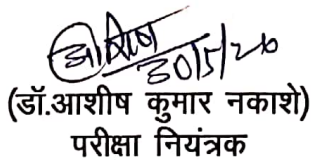 आशिष
30/5/20
(डॉ.आशीष कुमार नकाशे)
परीक्षा नियंत्रक